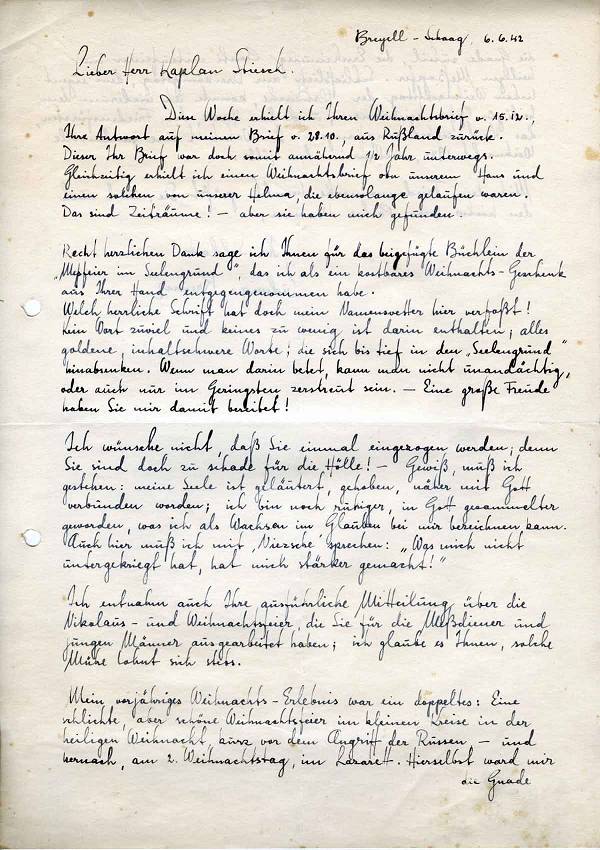 Breyell - Schaag, 6.6.42
Lieber Herr Kaplan
Diese Woche erhielt ich Ihren Weihnachtsbrief v. 15.12.,
Ihre Antwort auf meinen Brief v. 28.10., aus Rußland zurück.
Dieser Ihr Brief war doch somit annähernd 1/2 Jahr unterwegs.
Gleichzeitig erhielt ich einen Weihnachtsbrief von unserem Hans und
einen solchen von unserer Helma, die ebensolange gelaufen waren.
Das sind Zeiträume! — aber sie haben mich gefunden.
Recht herzlichen Dank sage ich Ihnen für das beigefügte Büchlein der
„Meßfeier im Seelengrund", das ich als ein kostbares Weihnachts-Geschenk
aus Ihrer Hand entgegengenommen habe.
Welch herrliche Schrift hat doch mein Namensvetter hier verfaßt!
Kein Wort zuviel und keines zu wenig ist darin enthalten; alles
goldene, inhaltschwere Worte; die sich bis tief in den „Seelengrund"
hinabsenken. Wenn man darin betet, kann man nicht unandächtig,
oder auch nur im Geringsten zerstreut sein. — Eine große Freude
haben Sie mir damit bereitet!
Ich wünsche nicht, daß Sie einmal eingezogen werden; denn
Sie sind doch zu schade für die Hölle! — Gewiß, muß ich
gestehen: meine Seele ist geläutert, gehoben, näher mit Gott
verbunden worden; ich bin noch ruhiger, in Gott gesammelter
geworden, was ich als Wachsen im Glauben bei mir bezeichnen kann.
Auch hier muß ich mit Niezsche sprechen: „Was mich nicht
untergekriegt hat, hat mich stärker gemacht!"
Ich entnahm auch Ihre ausführliche Mitteilung über die
Nikolaus- und Weihnachtsfeier, die Sie für die Meßdiener und
jungen Männer ausgearbeitet haben; ich glaube es Ihnen, solche
Mühe lohnt sich stets.
Mein vorjähriges Weihnachts-Erlebnis war ein doppeltes: Eine
schlichte, aber schöne Weihnachtsfeier im kleinen Kreise in der
heiligen Weihnacht, kurz vor dem Angriff der Russen — und
hernach, am 2. Weihnachtstag, im Lazarett. Hierselbst ward mir
die Gnade